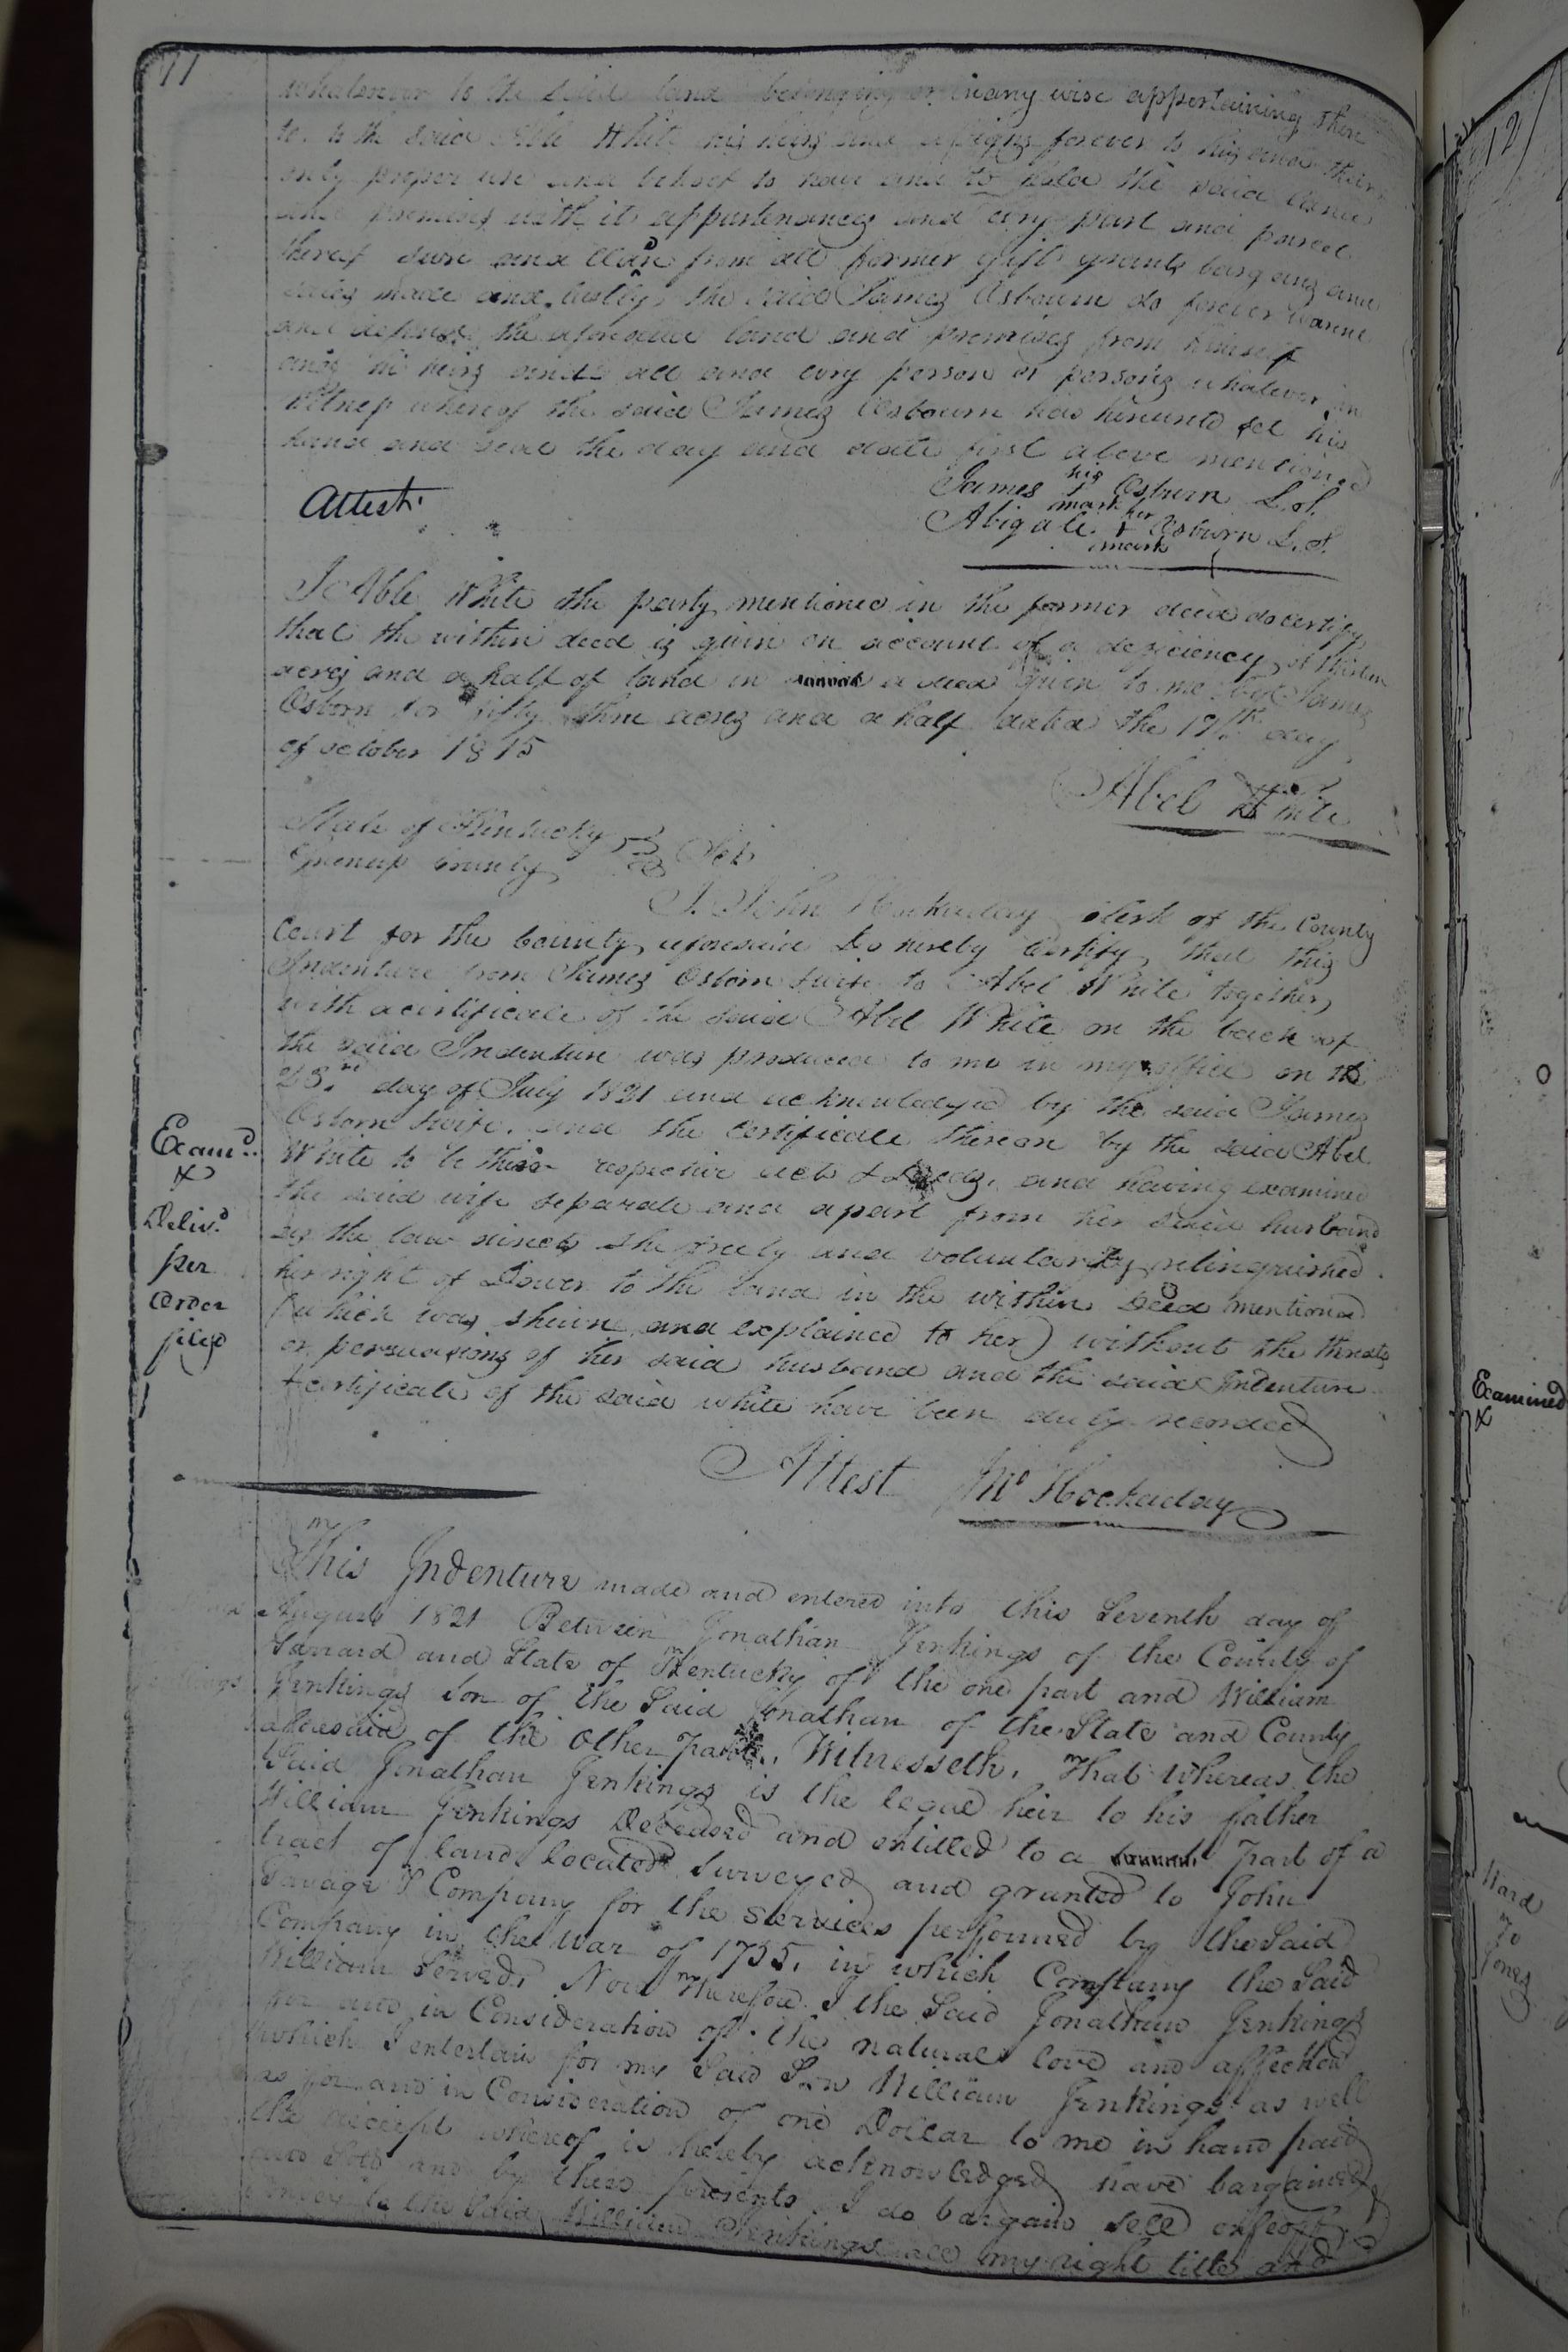 11
whatsoever to the said land belonging or in any wise appertaining there
to. to the said Able White his heirs and assigns forever to his and their
only proper use and behoof to have and to hold the said land
and premises with its appurtenances and evry part and parcel
thereof sure and clear from all former gifts grants bargains and
sales made and lastly the said James Osbourn do forever warrent
and defend the aforesaid land and premises from himself
and his heirs and all and evry person or persons whatever in
witness whereof the said James Osbourn has hereunto set his
hand and seal the day and date first above mentioned
Attest.
James his Osburn L.S.
mark
Abigale her + Osburn L.S.
mark
I Able White the party mentioned in the former deed do certify
that the within deed is given on account of a deficiency of thirteen
acres and a half of land in a deed given to me by James
Osborn for fifty three acres and a half dated the 17th day
of october 1815
Abel White
State of Kentucky
Greenup County Sct
I. John Hockaday clerk of the County
Court for the County aforesaid Do hereby Certify that this
Indenture from James Osborn & wife to Abel White together
with a certificate of the said Abel White on the back of
the said Indenture was produced to me in my office on the
23rd day of July 1821 and acknowledged by the said James
Osborn & wife. and the certificate thereon by the said Abel
White to be their respective acts & Deeds, and having examined
the said wife separate and apart from her said husband
as the law directs she freely and voluntarily relinquished
her right of Dower to the land in the within Deed mentioned
(which was shewn and explained to her) without the threats
or persuasions of her said husband and the said Indenture
& certificate of the said white have been duly recorded
Exam.d
&
Deliv.d
per
order
filed
Attest Jno Hockaday
This Indenture made and entered into this Seventh day of
August 1821 Between Jonathan Jenkings of the County of
Garrard and State of Kentucky of the one part and William
Jenkings Son of the Said Jonathan of the State and County
aforesaid of the Other Part. Witnesseth. That whereas the
Said Jonathan Jenkings is the legal heir to his father
William Jenkings Deceased and entitled to a Part of a
tract of land located Surveyed and granted to John
Savage & Company for the Services performed by the Said
Company in the War of 1755. in which Company the Said
William Served. Now Therefore I the Said Jonathan Jenkings
for and in Consideration of the natural love and affection
which I entertain for my Said Son William Jenkings as well
as for and in Consideration of one Dollar to me in hand paid
the receipt whereof is hereby acknowledged have bargained
and Sold and by these presents I do bargain Sell enfeoff
convey to the Said William Jenkings all my right title and
12
Examined
&
Ward
To
Jones